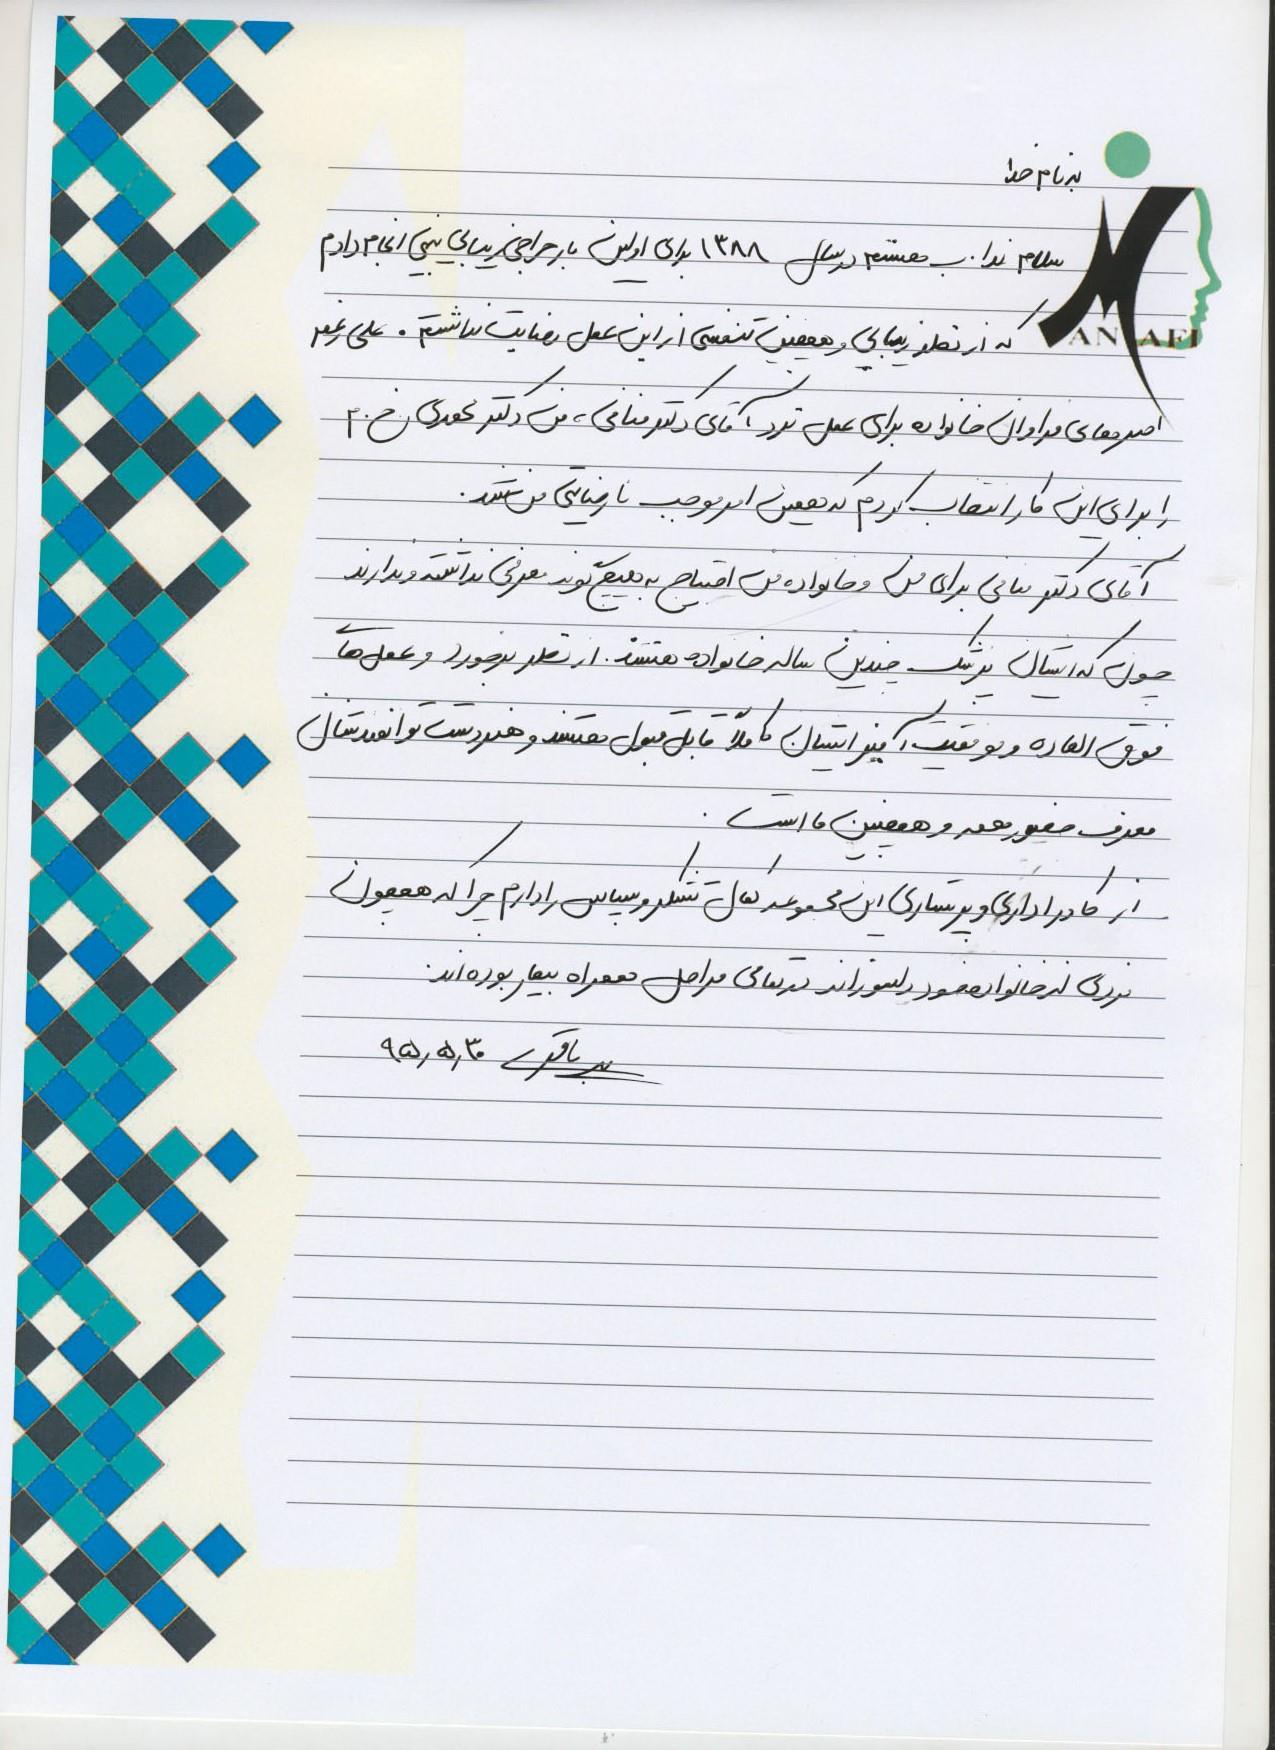 به نام خدا
MANAFI
سلام ندا.ب هستم در سال ۱۳۸۸ برای اولین بار جراحی زیبایی بینی انجام دادم
که از نظر زیبایی و همچنین تنفسی از این عمل رضایت نداشتم. علی رغم
اصرارهای فراوان خانواده برای عمل نزد آقای دکتر منافی، من دکتر
را برای این کار انتخاب کردم که همین امر موجب نارضایتی من شد.
آقای دکتر منافی برای من و خانواده من احتیاج به هیچ گونه معرفی نداشته و ندارند
چون که ایشان پزشک چندین ساله خانواده هستند. از نظر برخورد و عمل های
فوق العاده و موفقیت آمیز ایشان کاملاً قابل قبول هستند و هنر دست توانمندشان
معرف حضور همه و همچنین ما است.
از کادر اداری و پرستاری این مجموعه کمال تشکر و سپاس را دارم چرا که همچون
فردی از خانواده خود دلسوزانه در تمامی مراحل همراه بیمار بوده اند.
باقری ۹۵،۵،۳۰